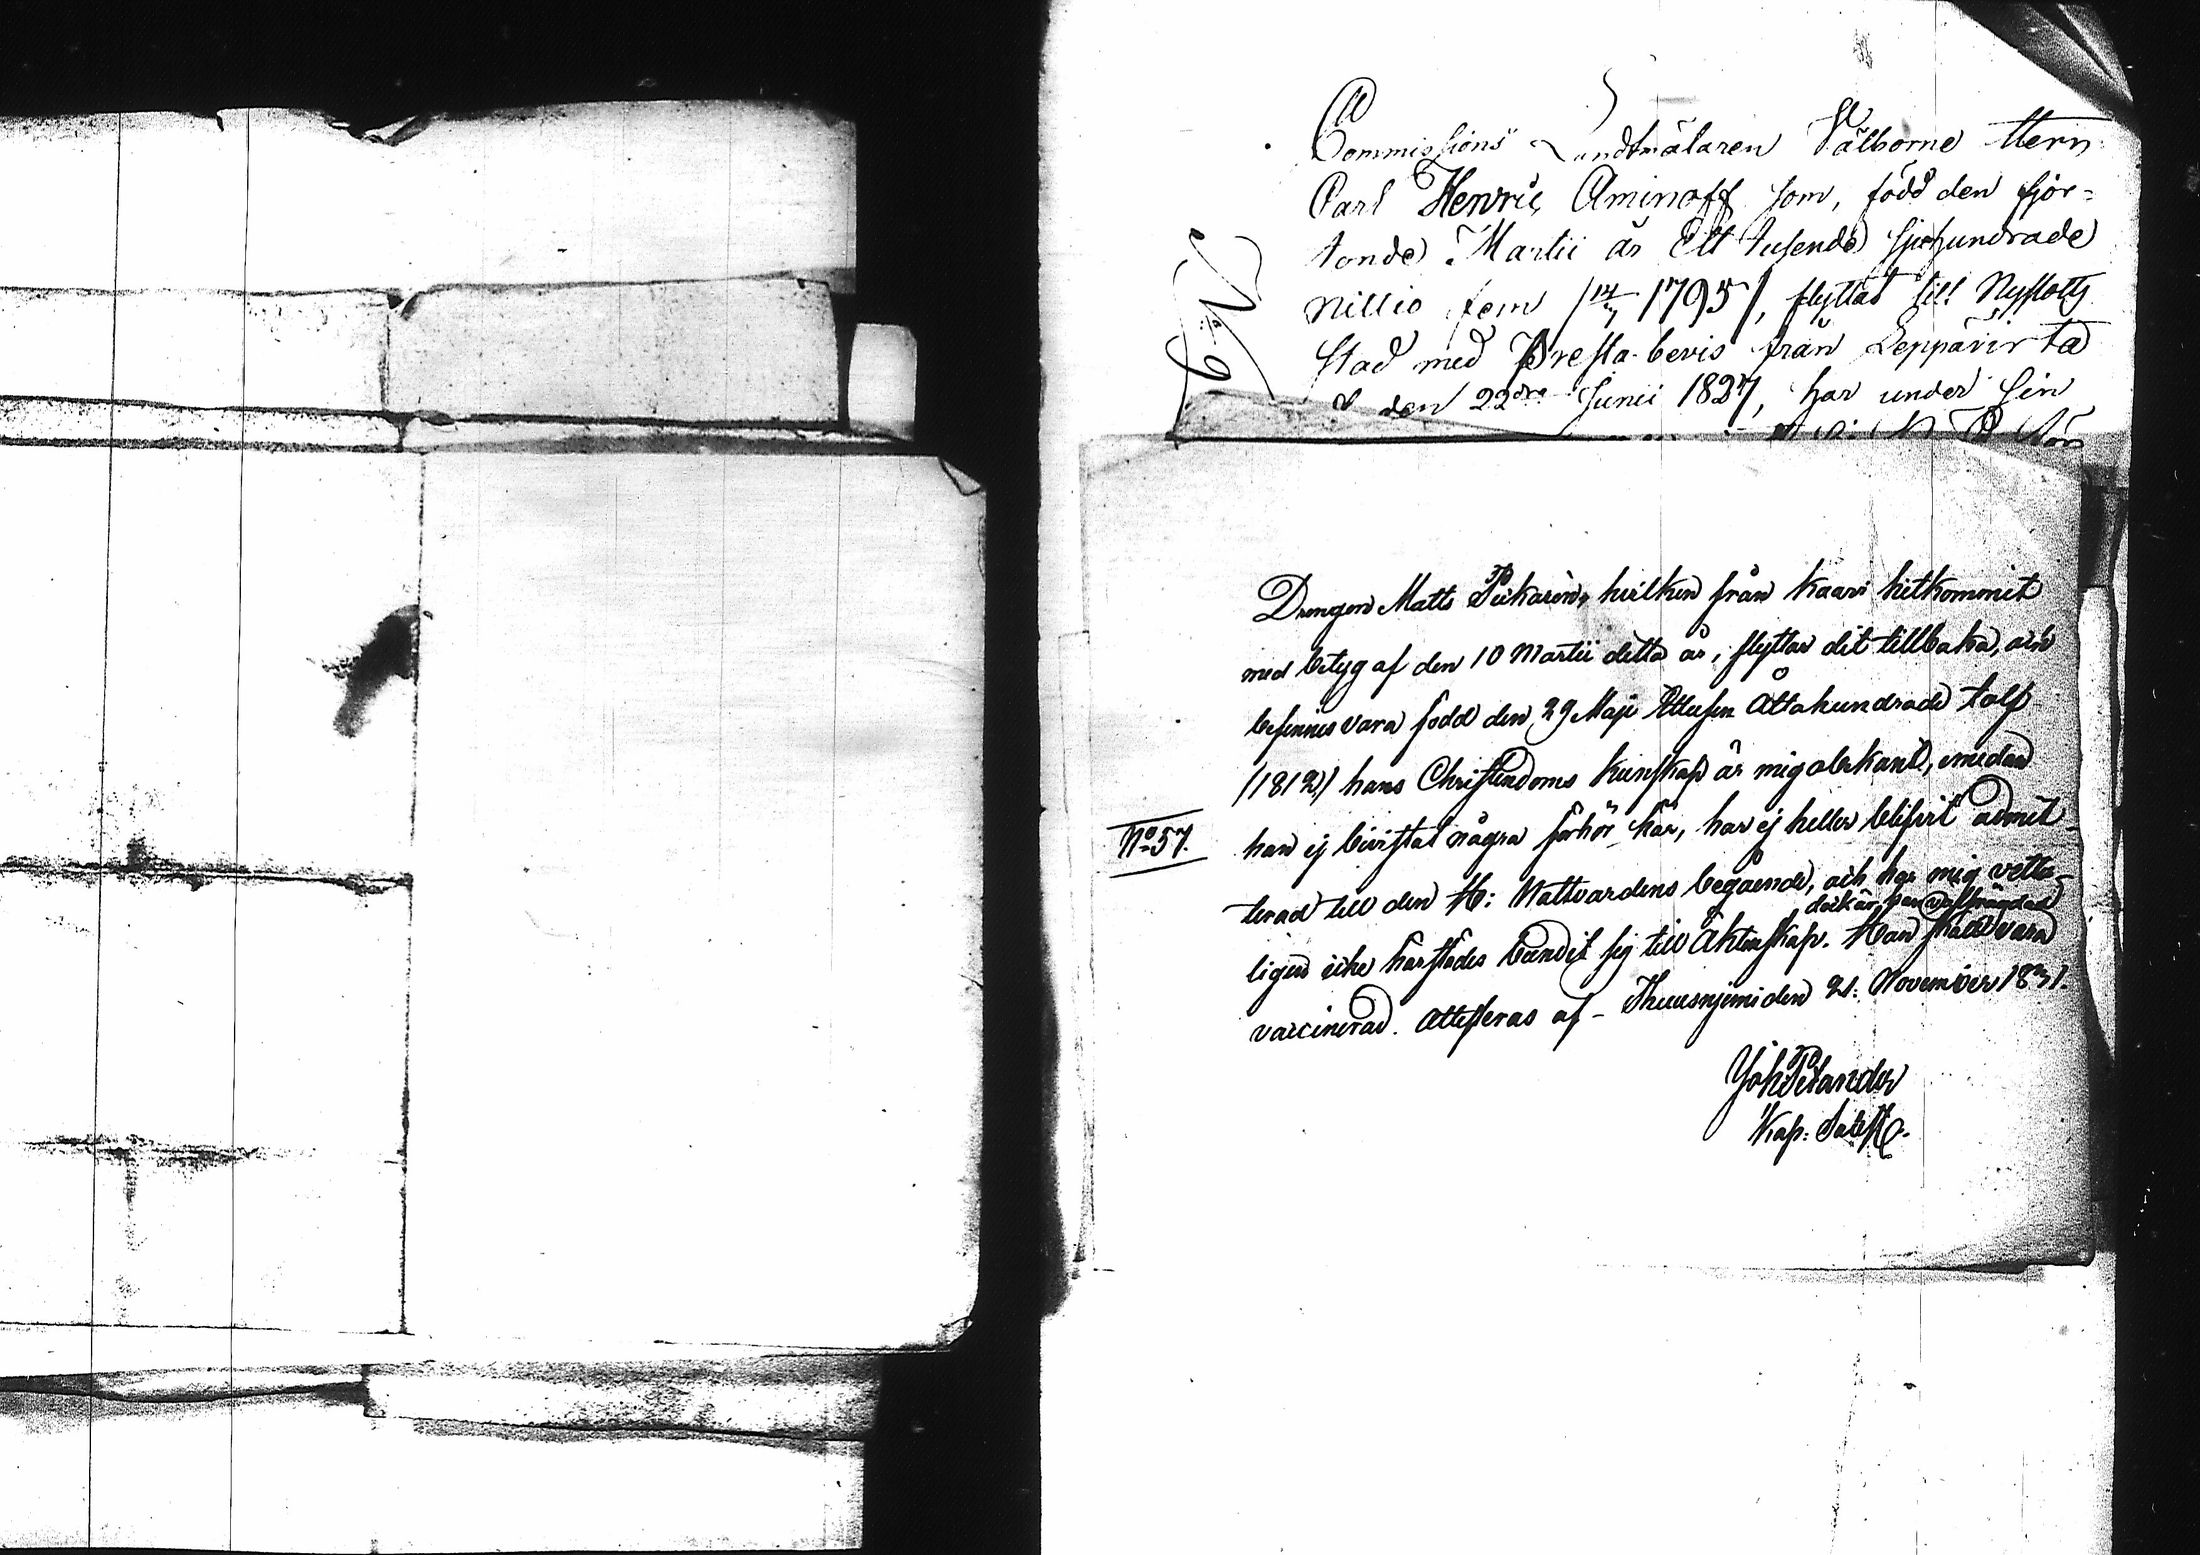 Commissions Landtmätaren Välborne Herr
Carl Henric Aminoff som, född den fjor-
tonde Martii år Ett tusende sjuhundrade
nittio fem /14/3 1795/, flyttat till Nyslotts
stad med Presta-bevis från Leppävirta
den 22dre Junii 1827, har under sin
Drengen Matts Pickarin, hvilken från Kaavi hitkommit
med betyg af den 10 Martii detta år, flyttar dit tillbaka, och
befinnes vara född den 29 Maji Ettusen Åttahundrade tolf
/1812/ hans Christendoms kunskap är mig obekant, emedan
N:o 57.
han ej bivistat några förhör här, har ej heller blifvit admit-
terad till den H: Nattvardens begående, och har mig vetter-
dock är han välfrägdad
ligen icke härstädes bundit sig till Äktenskap. Han skall vara
vaccinerad. Attesteras af - Thuusnjemi den 21: November 1831.
Joh Pelander
Kap: Sab